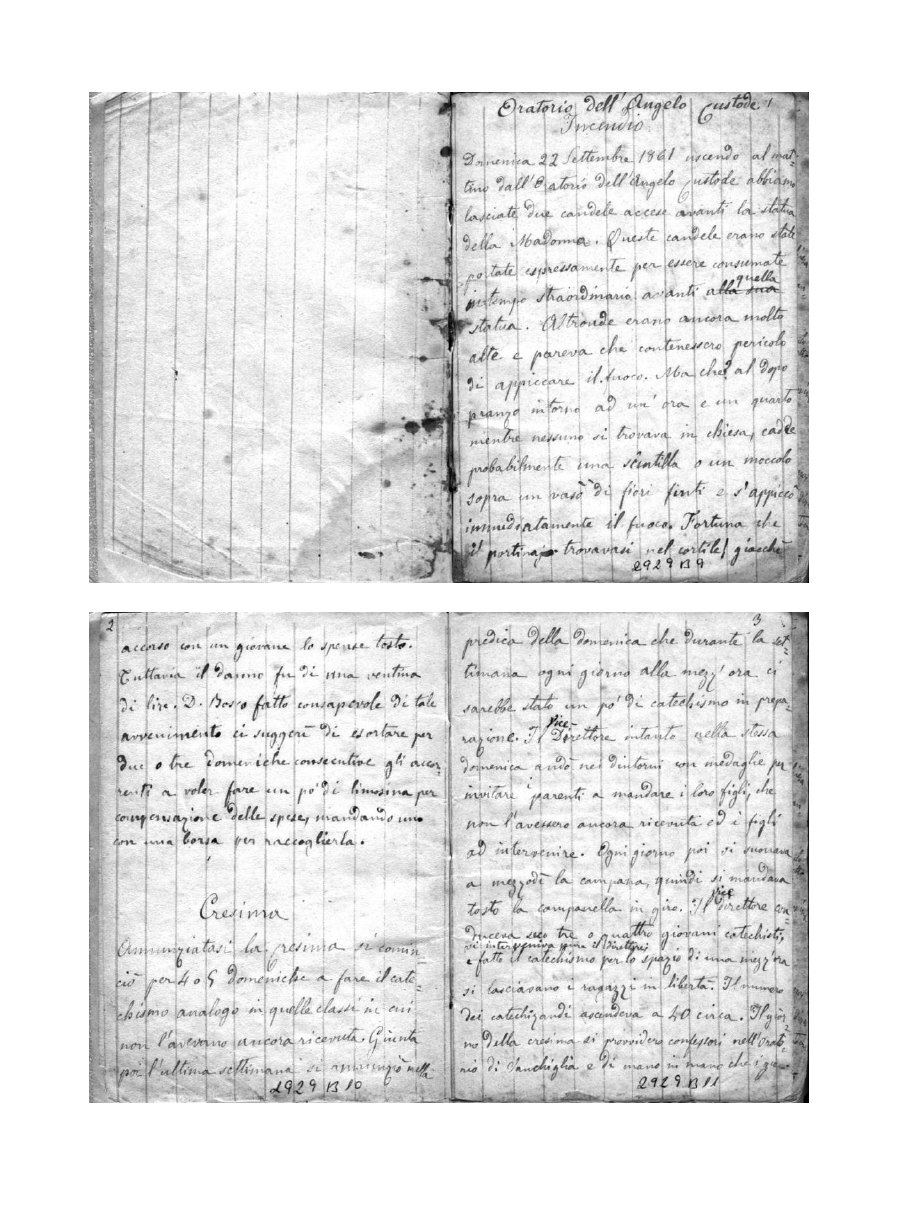 Oratorio dell'Angelo Custode 1
Incendio
Domenica 22 Settembre 1861 uscendo al mat-
tino dall'Oratorio dell'Angelo Custode abbiamo
lasciate due candele accese avanti la statua
della Madonna. Queste candele erano state
portate espressamente per essere consumate
quella
in tempo straordinario avanti alla sua
statua. Altronde erano ancora molto
alte e pareva che contenessero pericolo
di appiccare il fuoco. Ma che? al dopo
pranzo intorno ad un'ora e un quarto
mentre nessuno si trovava in chiesa, cadde
probabilmente una scintilla o un moccolo
sopra un vaso di fiori finti e s'appiccò
immediatamente il fuoco. Fortuna che
il portinajo trovavasi nel cortile, giacchè
2929 B 9
2
accorso con un giovane lo spense tosto.
Tuttavia il danno fu di una ventina
di lire. D. Bosco fatto consapevole di tale
avvenimento ci suggerì di esortare per
due o tre domeniche consecutive gli accor-
renti a voler fare un po' di limosina per
compensazione delle spese, mandando uno
con una borsa per raccoglierla.
Cresima
Annunziatasi la cresima si comin
ciò per 4 o 5 domeniche a fare il cate-
chismo analogo in quelle classi in cui
non l'avevano ancora ricevuta. Giunta
poi l'ultima settimana si annunziò nella
2929 B 10
3
predica della domenica che durante la set-
timana ogni giorno alla mezz'ora ci
sarebbe stato un po' di catechismo in prepa-
vice
razione. Il Direttore intanto nella stessa
domenica andò nei dintorni con medaglie per
invitare i parenti a mandare i loro figli, che
non l'avessero ancora ricevuta ed i figli
ad intervenire. Ogni giorno poi si suonava
a mezzodì la campana, quindi si mandava
vice
tosto la campanella in giro. Il direttore con-
duceva seco tre o quattro giovani catechisti,
vi interveniva pure il Direttore;
e fatto il catechismo per lo spazio di una mezz'ora
si lasciavano i ragazzi in libertà. Il numero
dei catechizandi ascendeva a 40 circa. Il gior-
no della cresima si provvidero confessori nell'Orato-
rio di Vanchiglia e di mano in mano che i gio-
2929 B 11